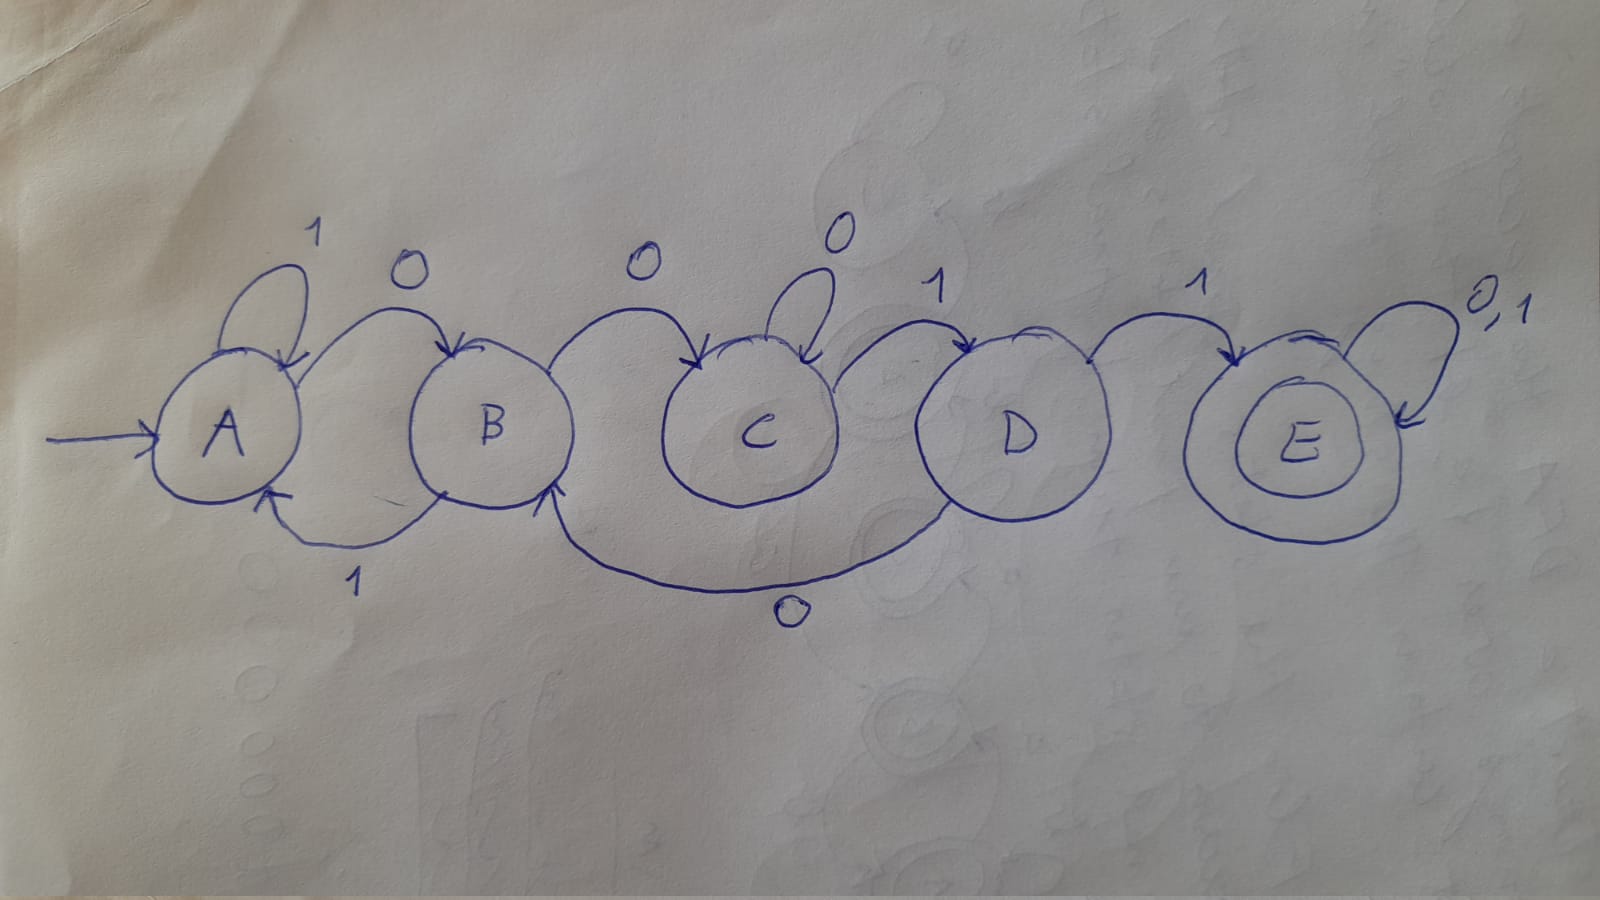 1 0 0 0 1 1 0,1
A B C D E
1 0